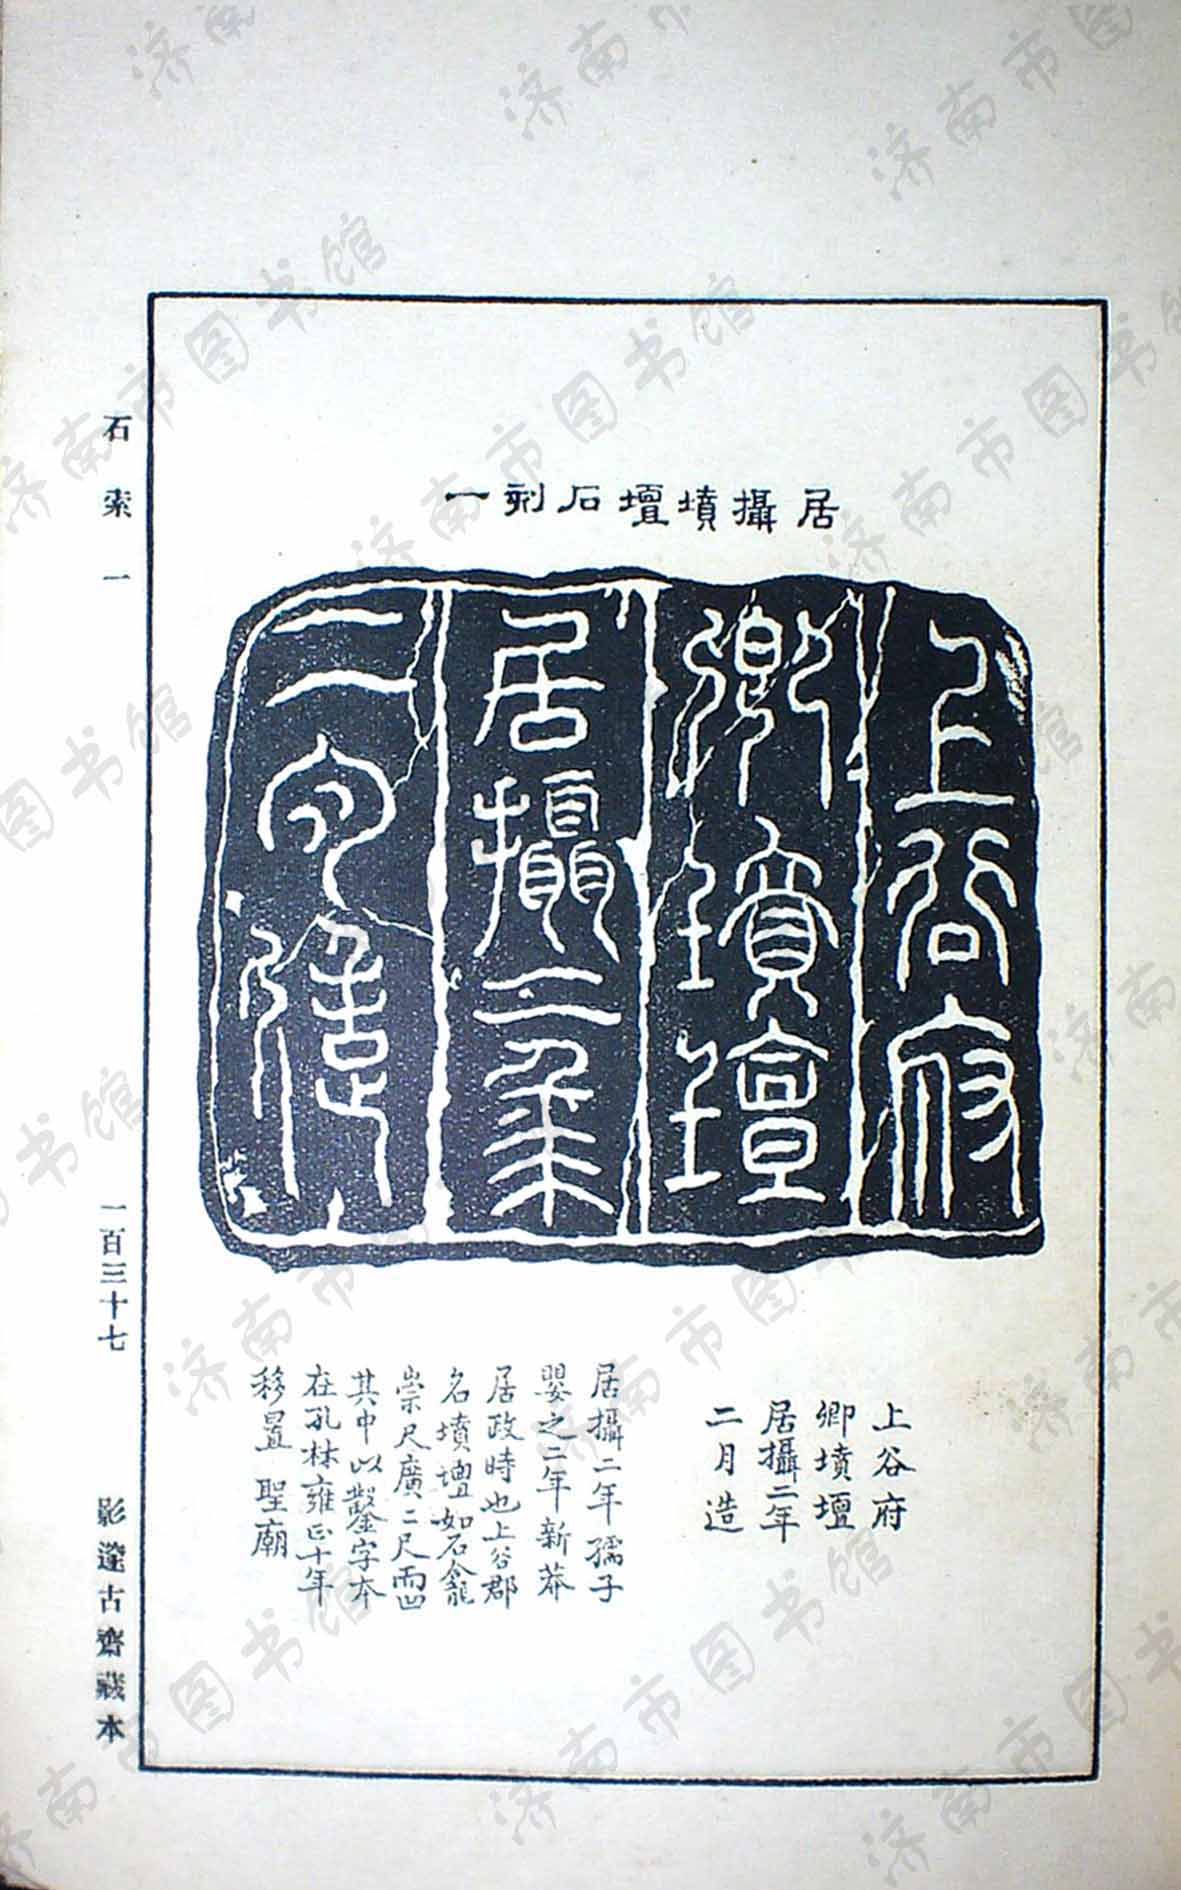 居攝墳壇石刻一
上谷府
卿墳壇
居攝二年
二月造
上谷府
卿墳壇
居攝二年
二月造
居攝二年孺子
嬰之二年新莽
居政時也上谷郡
名墳壇如石龕
崇尺廣二尺而凹
其中以鑿字本
在孔林雍正十年
移置聖廟
石索一
一百三十七
影邃古齋藏本
济南市图书馆